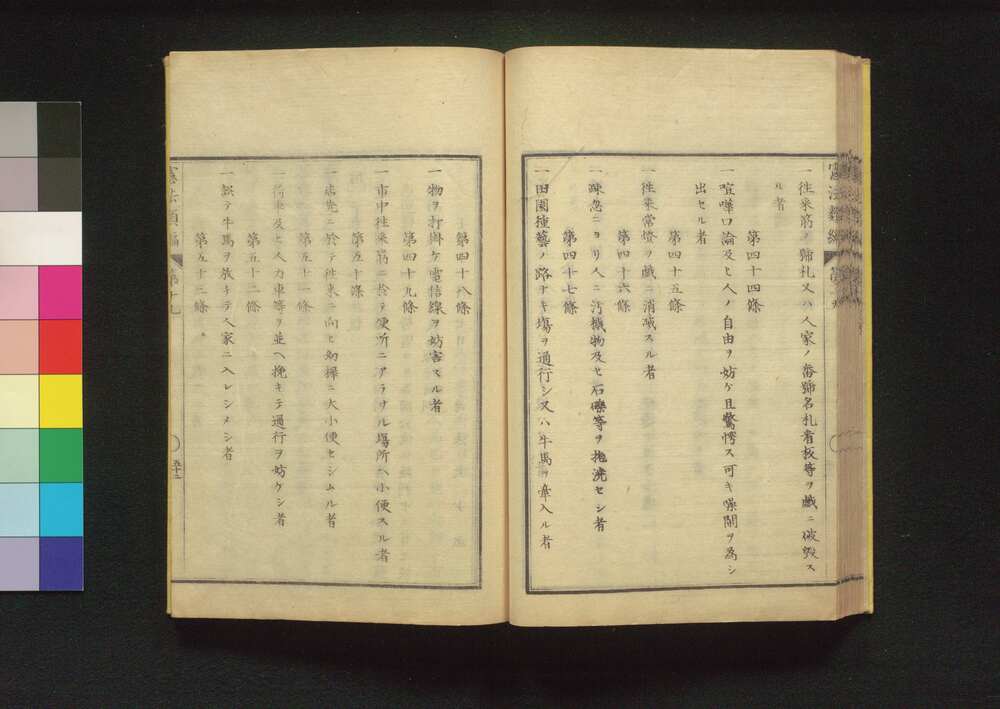 一往来筋ノ號札又ハ人家ノ番號名札看板等ヲ戯ニ破毀ス
ル者
第四十四條
一喧嘩口論及ヒ人ノ自由ヲ妨ケ且驚愕ス可キ噪閙ヲ為シ
出セル者
第四十五條
一往来常燈ヲ戯ニ消滅スル者
第四十六條
一疎忽ニヨリ人ニ汚穢物及ヒ石礫等ヲ抛澆セシ者
第四十七條
一田園種藝ノ路ナキ塲ヲ通行シ又ハ牛馬ヲ牽入ル者
第四十八條
一物ヲ打掛ケ電信線ヲ妨害スル者
第四十九條
一市中往来筋ニ於テ便所ニアラサル塲所ヘ小便スル者
第五十條
一店先ニ於テ往来ニ向ヒ幼稺ニ大小便セシムル者
第五十一條
一荷車及ヒ人力車等ヲ並ヘ挽キテ通行ヲ妨ケシ者
第五十二條
一誤テ牛馬ヲ放チテ人家ニ入レシメシ者
第五十三條
憲法類編 第十九
五十三